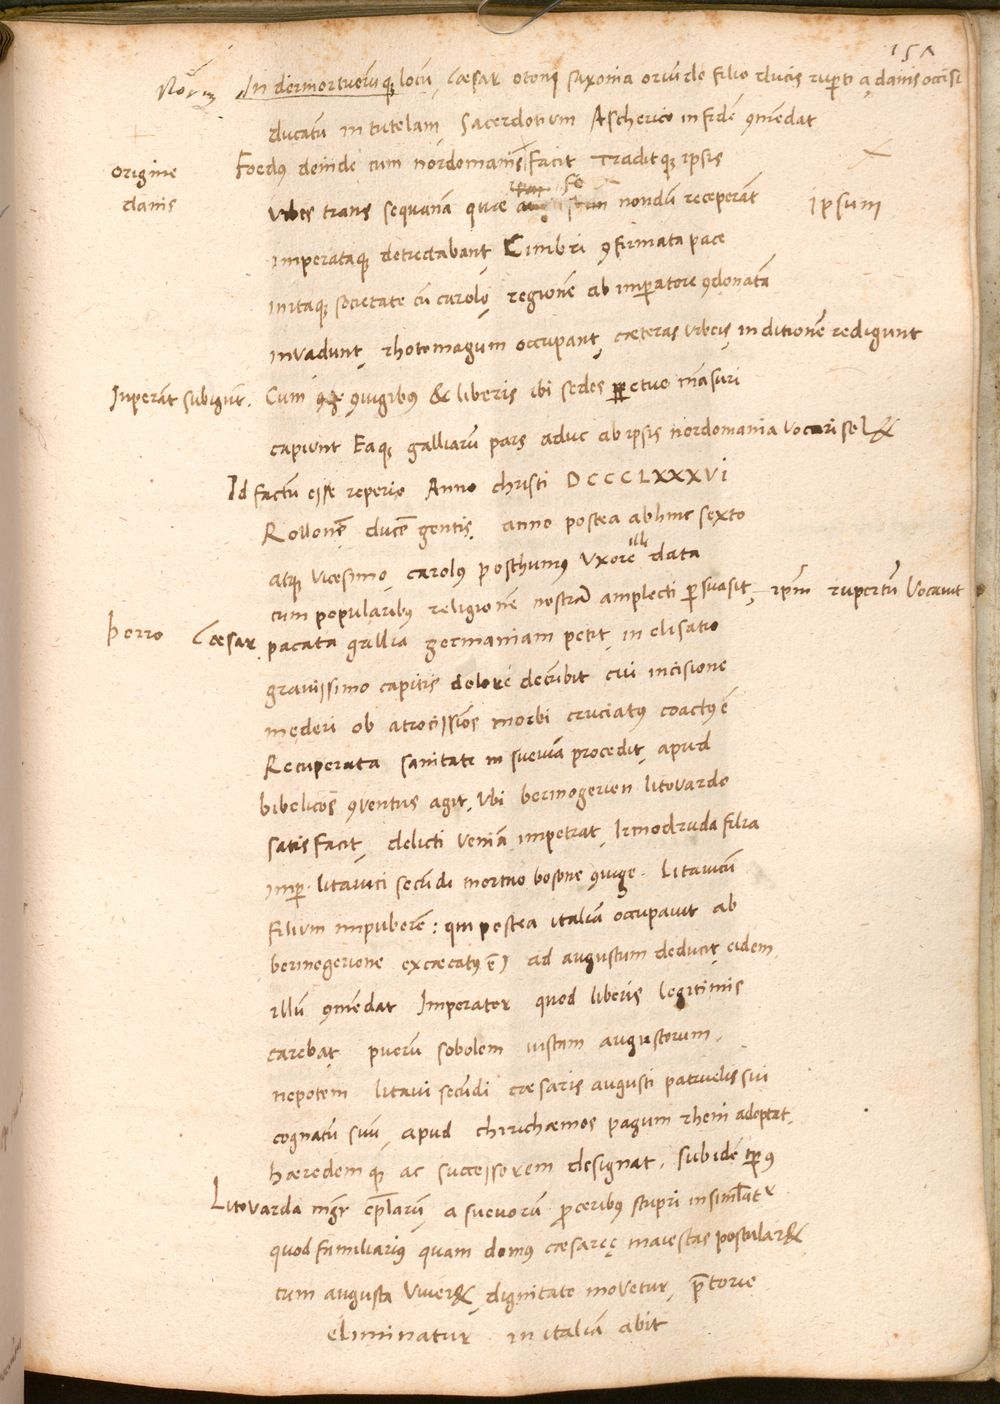 151
In demortuorūq; locū, Cæsar otonē saxonia oriūdo filio ducis ruꝑti a danis occisi
ducatū in tutelam Sacerdotium Ascherico in fidē ꝯmēdat
Foedus deinde cum nordomanis facit Traditq; ipsis
origine
danis
vrbes trans sequanam quæ nondū receperāt
ipsum
imperataq; detrectabant Cimbri ꝯfirmata pace
initaq; societate cū carolo, regionē ab imꝑatore ꝯdonatā
invadunt, rhotomagum occupant, cæteras vrbeis in ditionē redigunt
Inperāt subigūt.
Cum ꝯiugibus & liberis ibi sedes ꝑpetuo māsuri
capiunt Eaq; galliarū pars aduc ab ipsis nordomania vocari sol&
Id factū esse reperio Anno christi DCCCLXXXVI
Rollonē ducē gentis, anno postea abhinc sexto
atq; vicesimo carolus posthumus vxore illi data
cum popularibus religionē nostrā amplecti ꝑsuasit, ipm̄ rupertū vocavit
Porro Cæsar pacata gallia germaniam petit, in elisatio
gravissimo capitis dolore decūbit cui incisione
mederi ob atrocissimos morbi cruciatus coactus ē
Recuperata sanitate in sueviā procedit, apud
bibelicos ꝯventus agit, Vbi bermogerien litovardo
satis facit, delicti veniā impetrat, Irmodruda filia
imꝑ. litavici secūdi mortuo bosone ꝯiuge. Litavicū
filium impuberē: qui postea italiā occupavit ab
bermogerione excæcatus ē) ad augustum deducit, eidem
illū ꝯmēdat Imperator quod liberis legitimis
carebat, puerū sobolem iustam augustorum,
nepotem litavi secūdi cæsaris augusti patruelis sui
cognatū suū, apud chirichæmos pagum rheni adoptat,
hæredemq; ac successorem designat. subidē tꝑus
Litovarda mgr̄ ep̄larū, a suevorū proceribus stupri insimulatr
quod familiarius quam domus cæsaręę maiestas postular&
cum augusta viver&, dignitate movetur, p̄torie
eliminatur in italiā abit